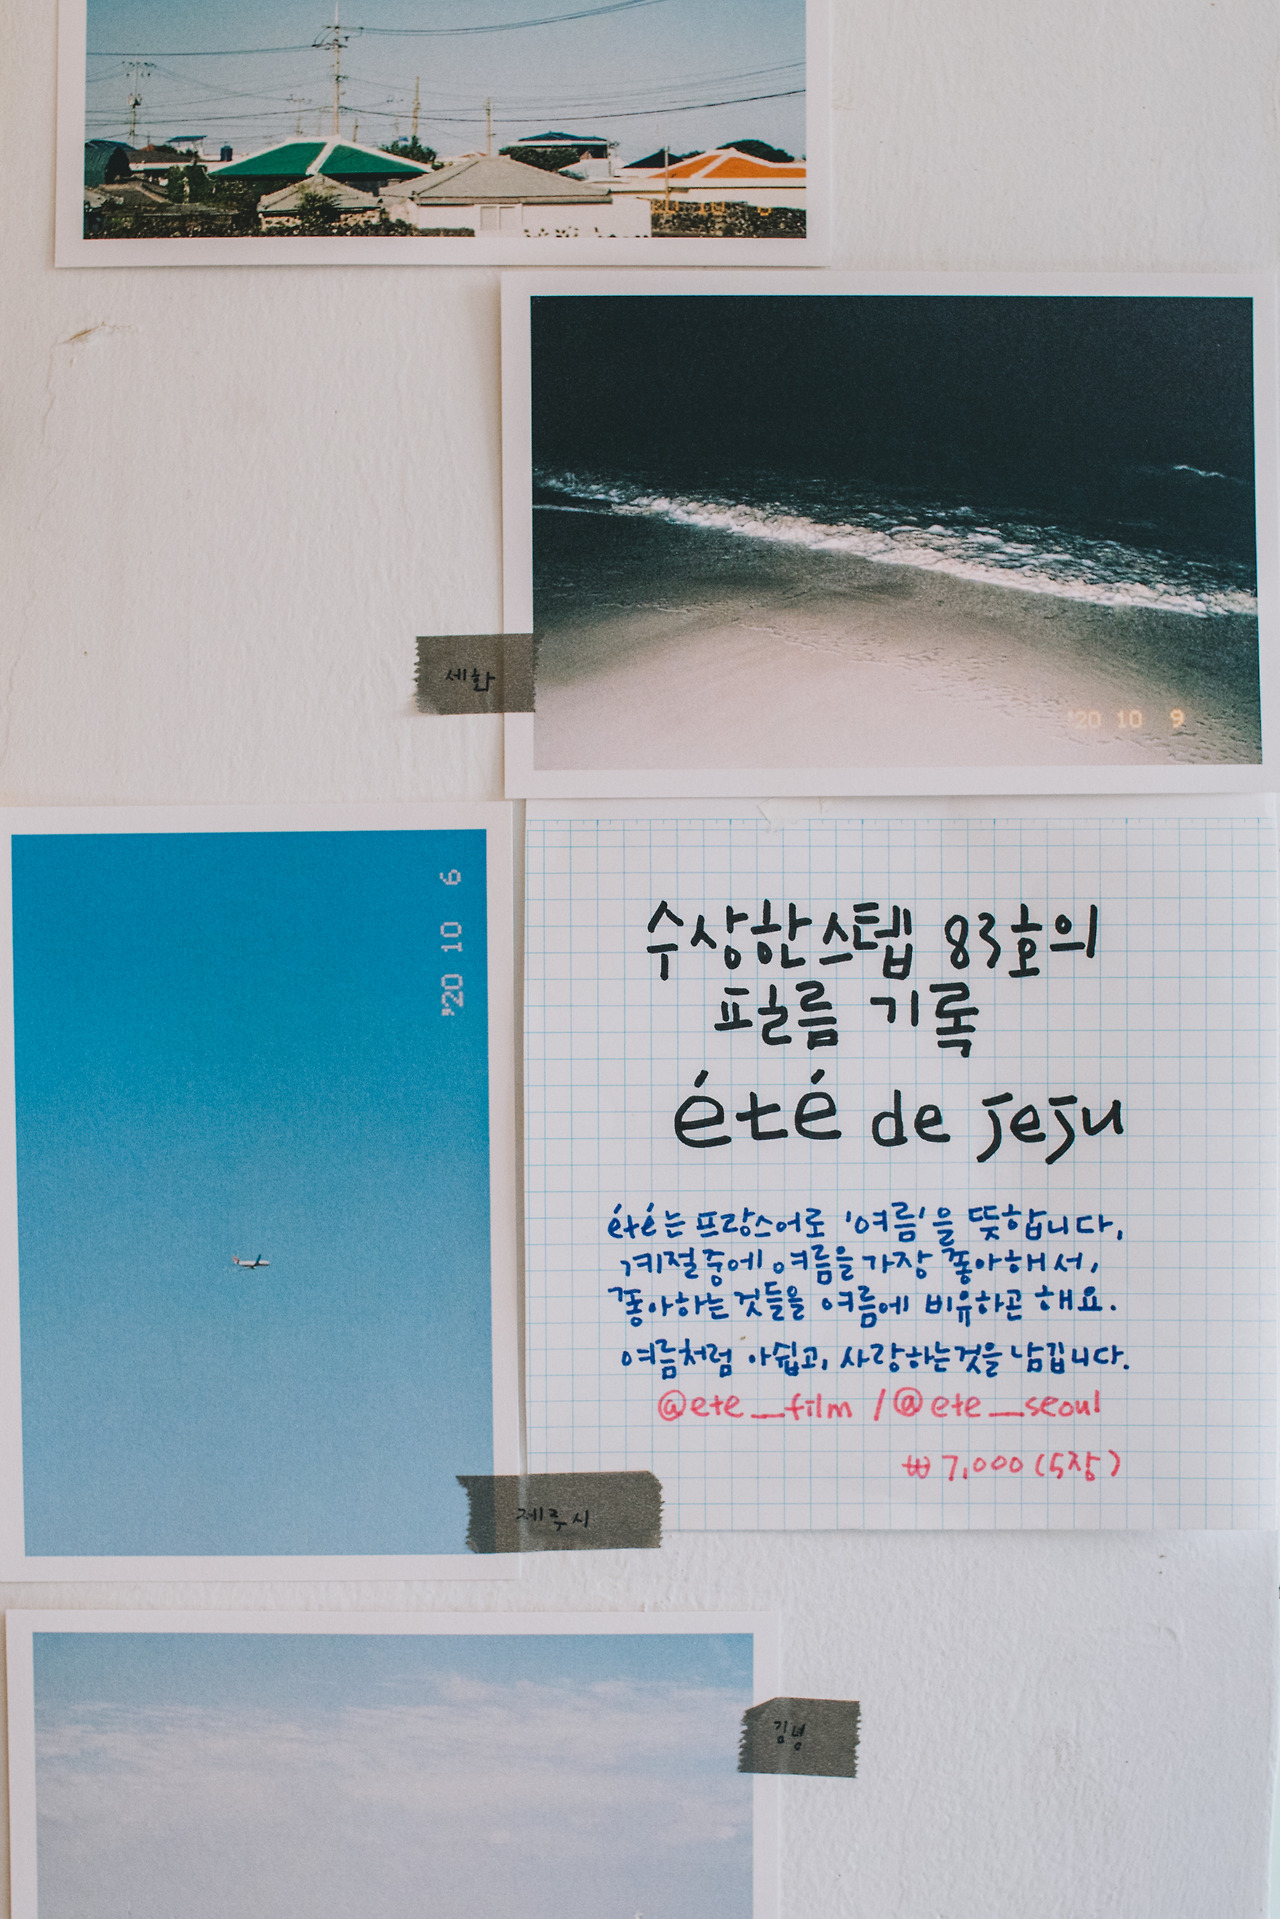 세화
'20 10 9
'20 10 6
수상한스텝 83호의
필름 기록
été de jeju
été는 프랑스어로 '여름'을 뜻합니다,
계절중에 여름을 가장 좋아해서,
좋아하는 것들을 여름에 비유하곤 해요.
여름처럼 아쉽고, 사랑하는것을 남깁니다.
@ete__film / @ete__seoul
₩7,000 (5장)
제주시
김녕